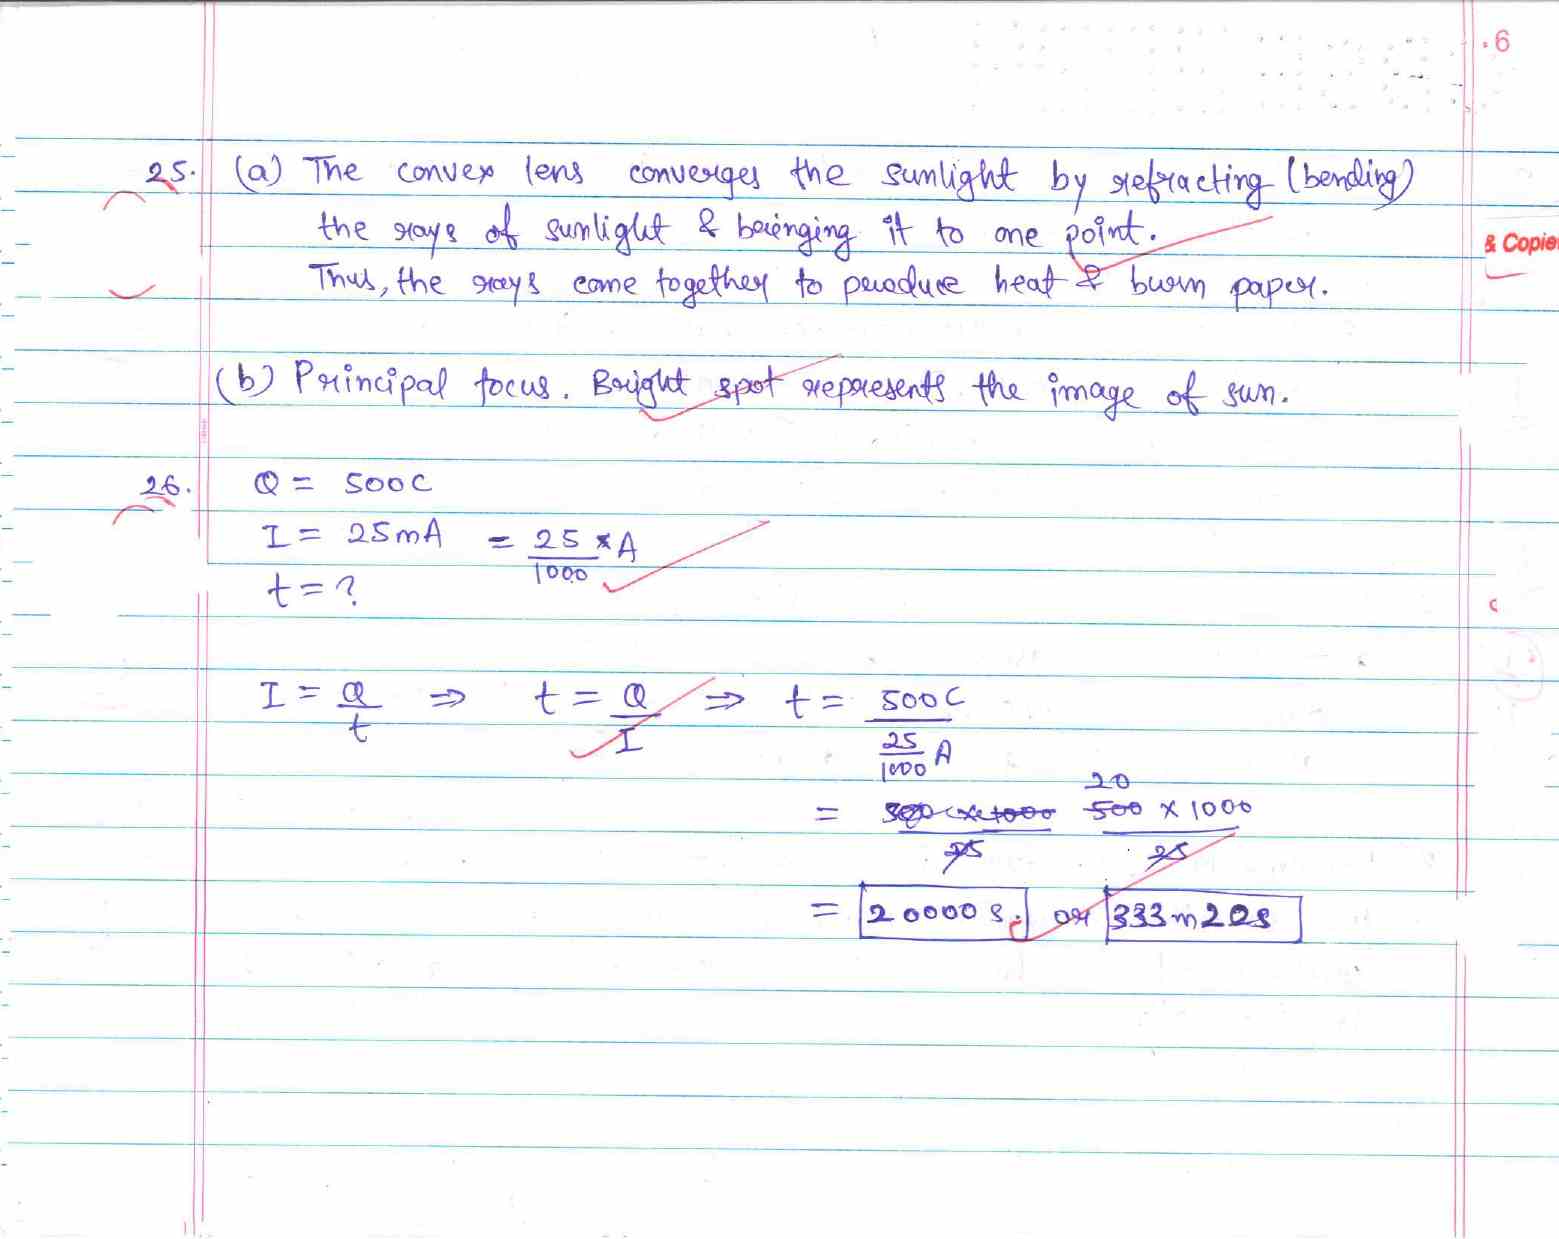 .6
25. (a) The convex lens converges the sunlight by refracting (bending)
the rays of sunlight & bringing it to one point.
& Copie
Thus, the rays come together to produce heat & burn paper.
(b) Principal focus. Bright spot represents the image of sun.
26. Q = 500C
I = 25mA = 25/1000 A
t = ?
I = Q/t ⇒ t = Q/I ⇒ t = 500C / (25/1000 A)
20
= 500 × 1000 / 25
= 20000 s. or 333m20s